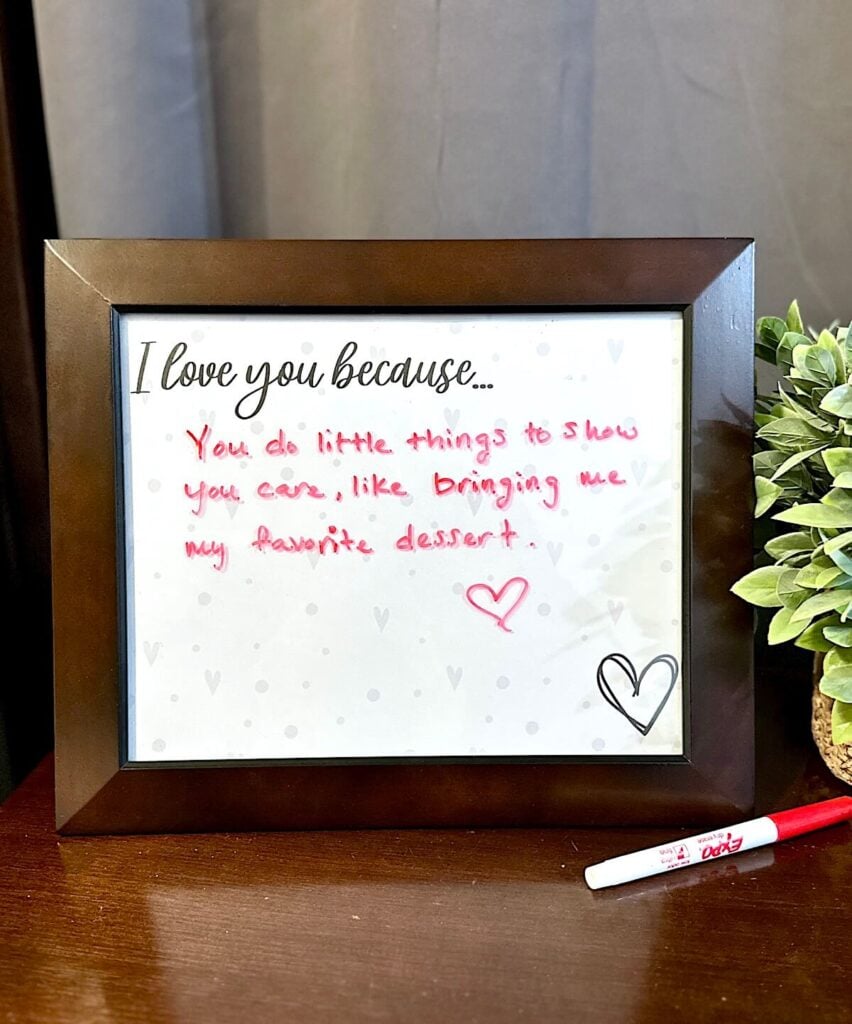 I love you because...
You do little things to show
you care, like bringing me
my favorite dessert.
EXPO